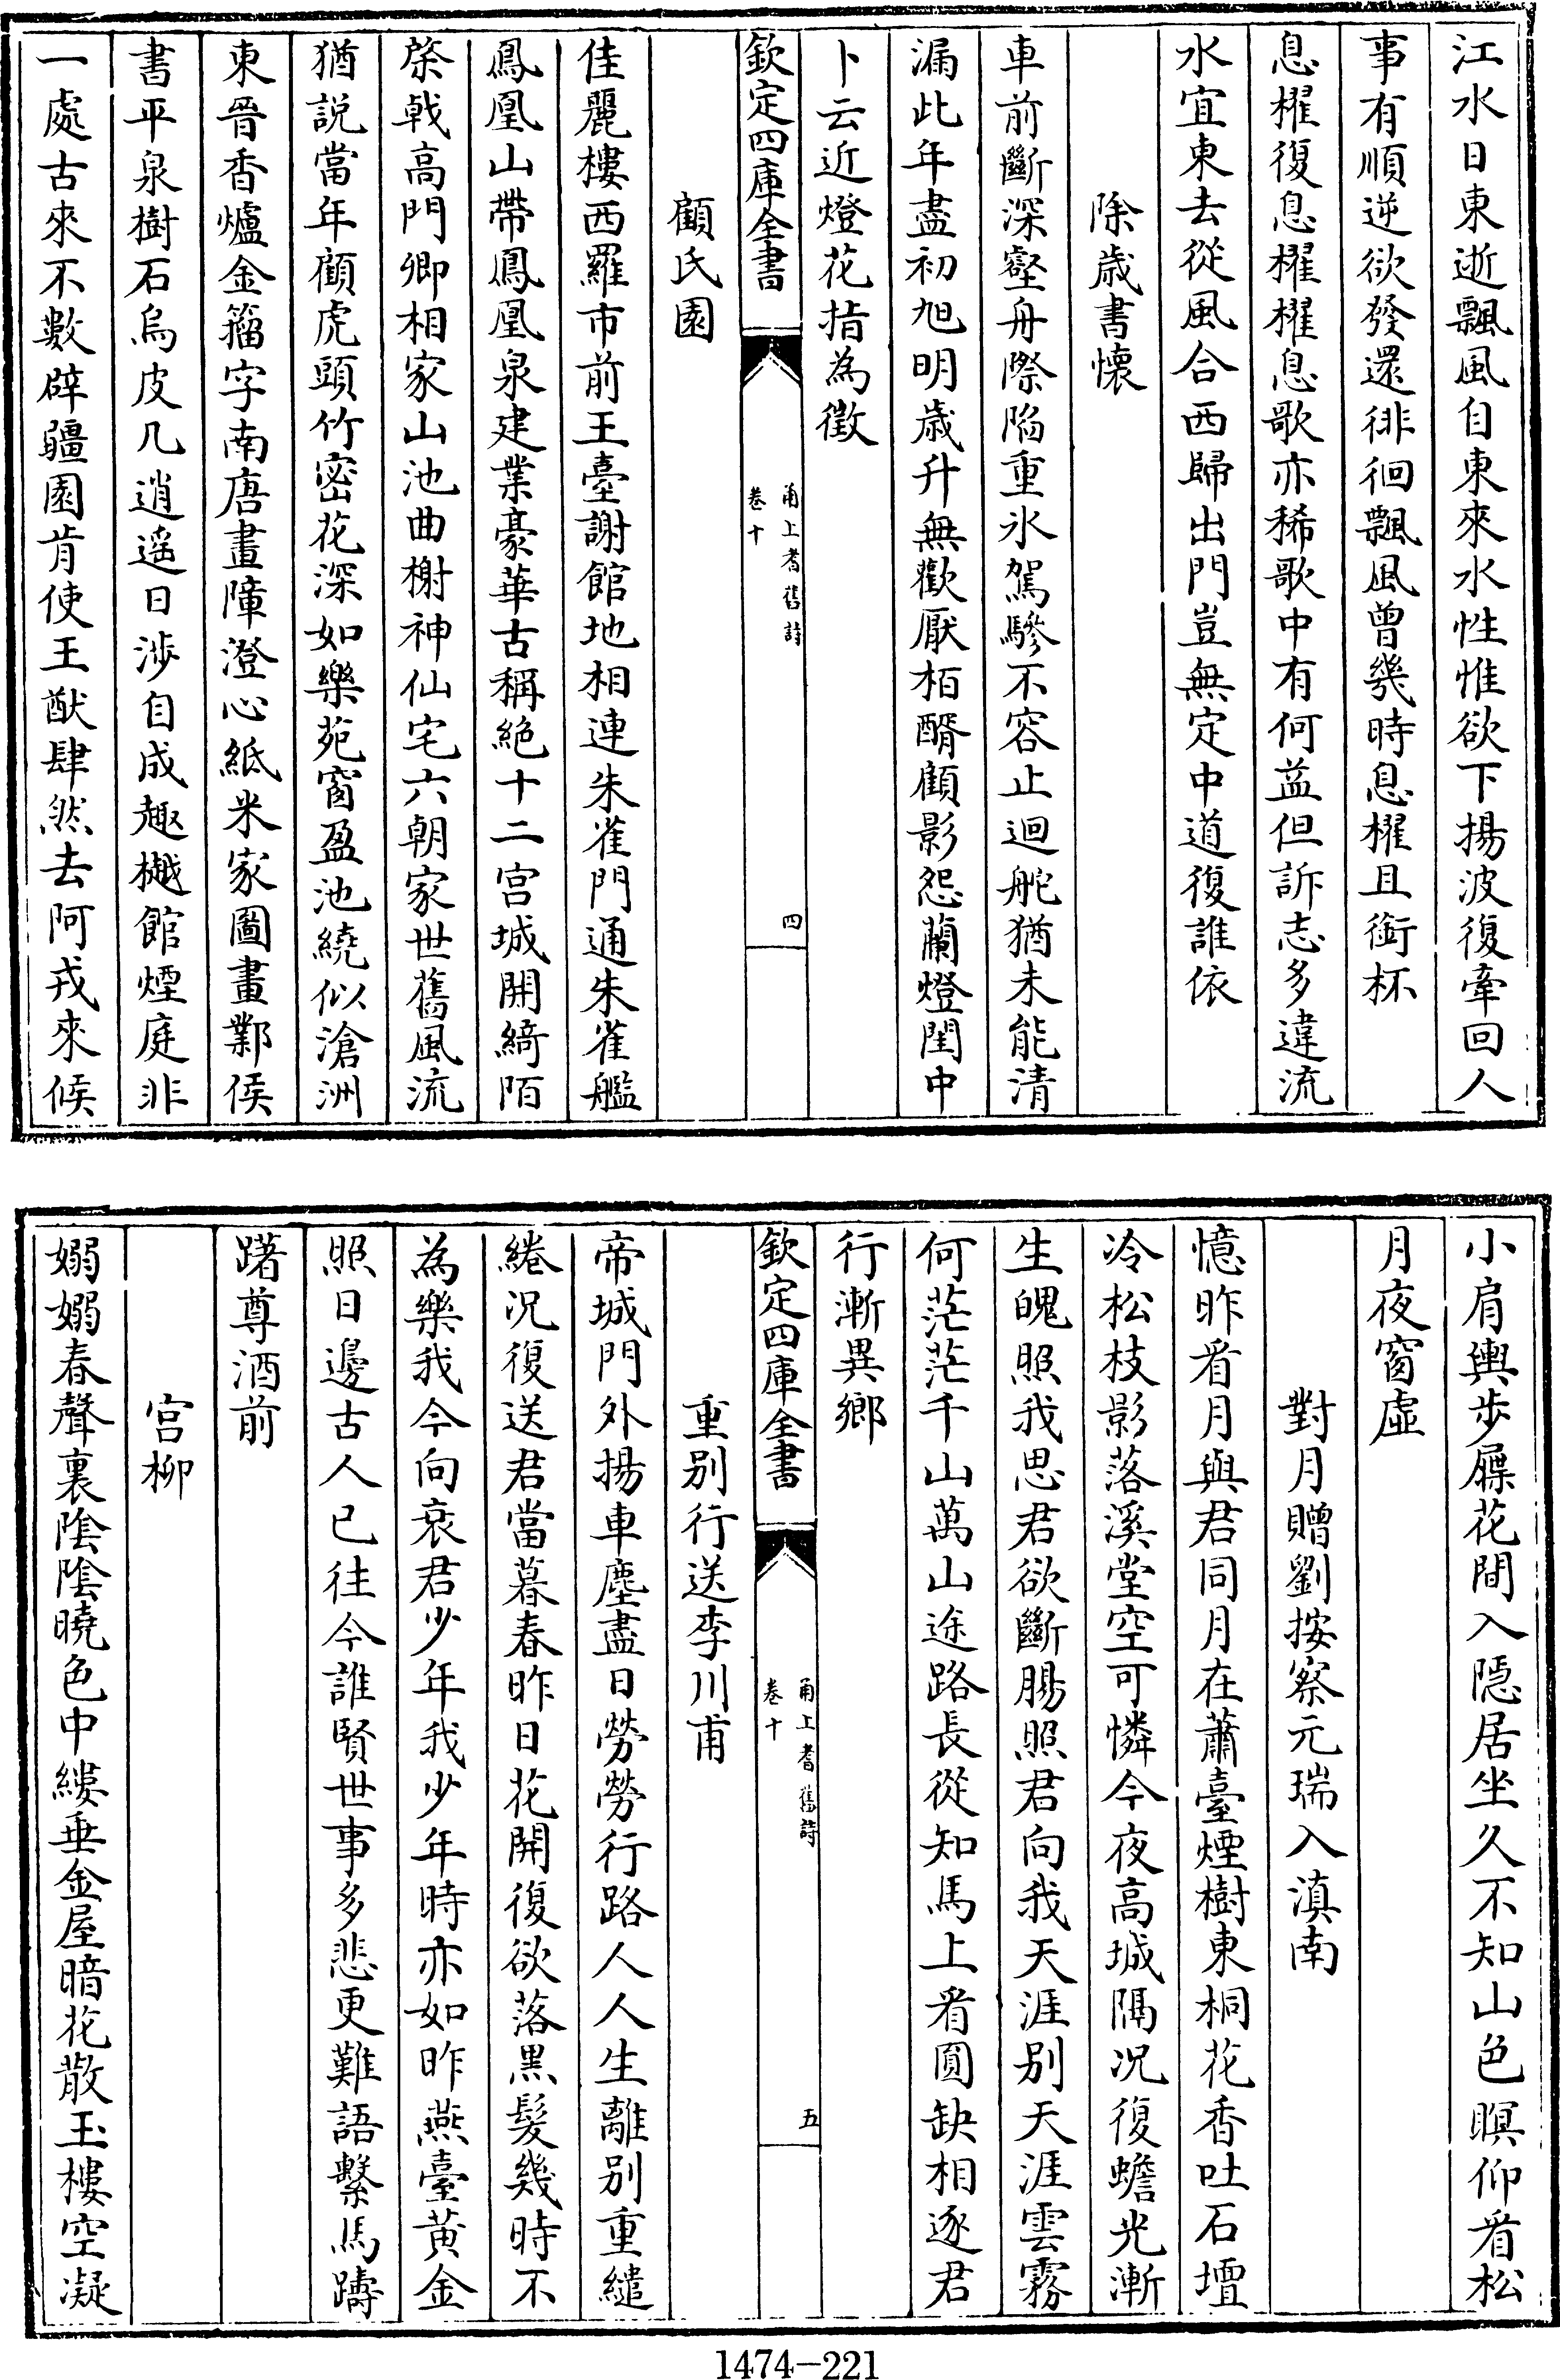 江水日東逝飄風自東來水性惟欲下揚波復牽回人
事有順逆欲發還徘徊飄風曾幾時息櫂且銜杯
息櫂復息櫂櫂息歌亦稀歌中有何益但訴志多違流
水宜東去從風合西歸出門豈無定中道復誰依
除歲書懷
車前斷深壑舟際陷重氷駕驂不容止迴舵猶未能清
漏此年盡初旭明歲升無歡厭栢醑顧影怨蘭燈閨中
卜云近燈花指為徵
欽定四庫全書
甬上耆舊詩
卷十
四
顧氏園
佳麗樓西羅市前王臺謝館地相連朱雀門通朱雀艦
鳳凰山帶鳳凰泉建業豪華古稱絶十二宮城開綺陌
棨戟高門卿相家山池曲榭神仙宅六朝家世舊風流
猶説當年顧虎頭竹密花深如樂苑窗盈池繞似滄洲
東晉香爐金籀字南唐畫障澄心紙米家圖畫鄴侯
書平泉樹石烏皮几逍遥日渉自成趣樾館煙庭非
一處古來不數辟疆園肯使王猷肆然去阿戎來候
小肩輿步屧花間入隠居坐久不知山色暝仰看松
月夜窗虛
對月贈劉按察元瑞入滇南
憶昨看月與君同月在蕭臺煙樹東桐花香吐石壇
冷松枝影落溪堂空可憐今夜高城隔况復蟾光漸
生魄照我思君欲斷腸照君向我天涯别天涯雲霧
何茫茫千山萬山途路長從知馬上看圓缺相逐君
行漸異鄉
欽定四庫全書
甬上耆舊詩
卷十
五
重别行送李川甫
帝城門外揚車塵盡日勞勞行路人人生離别重繾
綣况復送君當暮春昨日花開復欲落黒髮幾時不
為樂我今向衰君少年我少年時亦如昨燕臺黄金
照日邊古人已往今誰賢世事多悲更難語繫馬躊
躇尊酒前
宫柳
嫋嫋春聲裏陰陰曉色中縷垂金屋暗花散玉樓空凝
1474—221